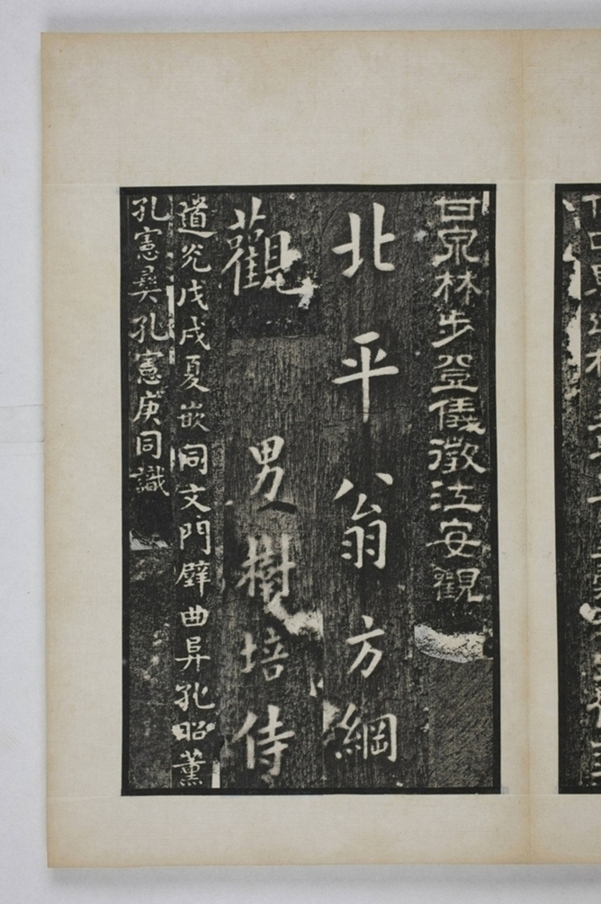 甘泉林步登儀徵江安觀
北平翁方綱
觀　男樹培侍
道光戊戌夏嵌同文門壁曲阜孔昭薰
孔憲彝孔憲庚同識